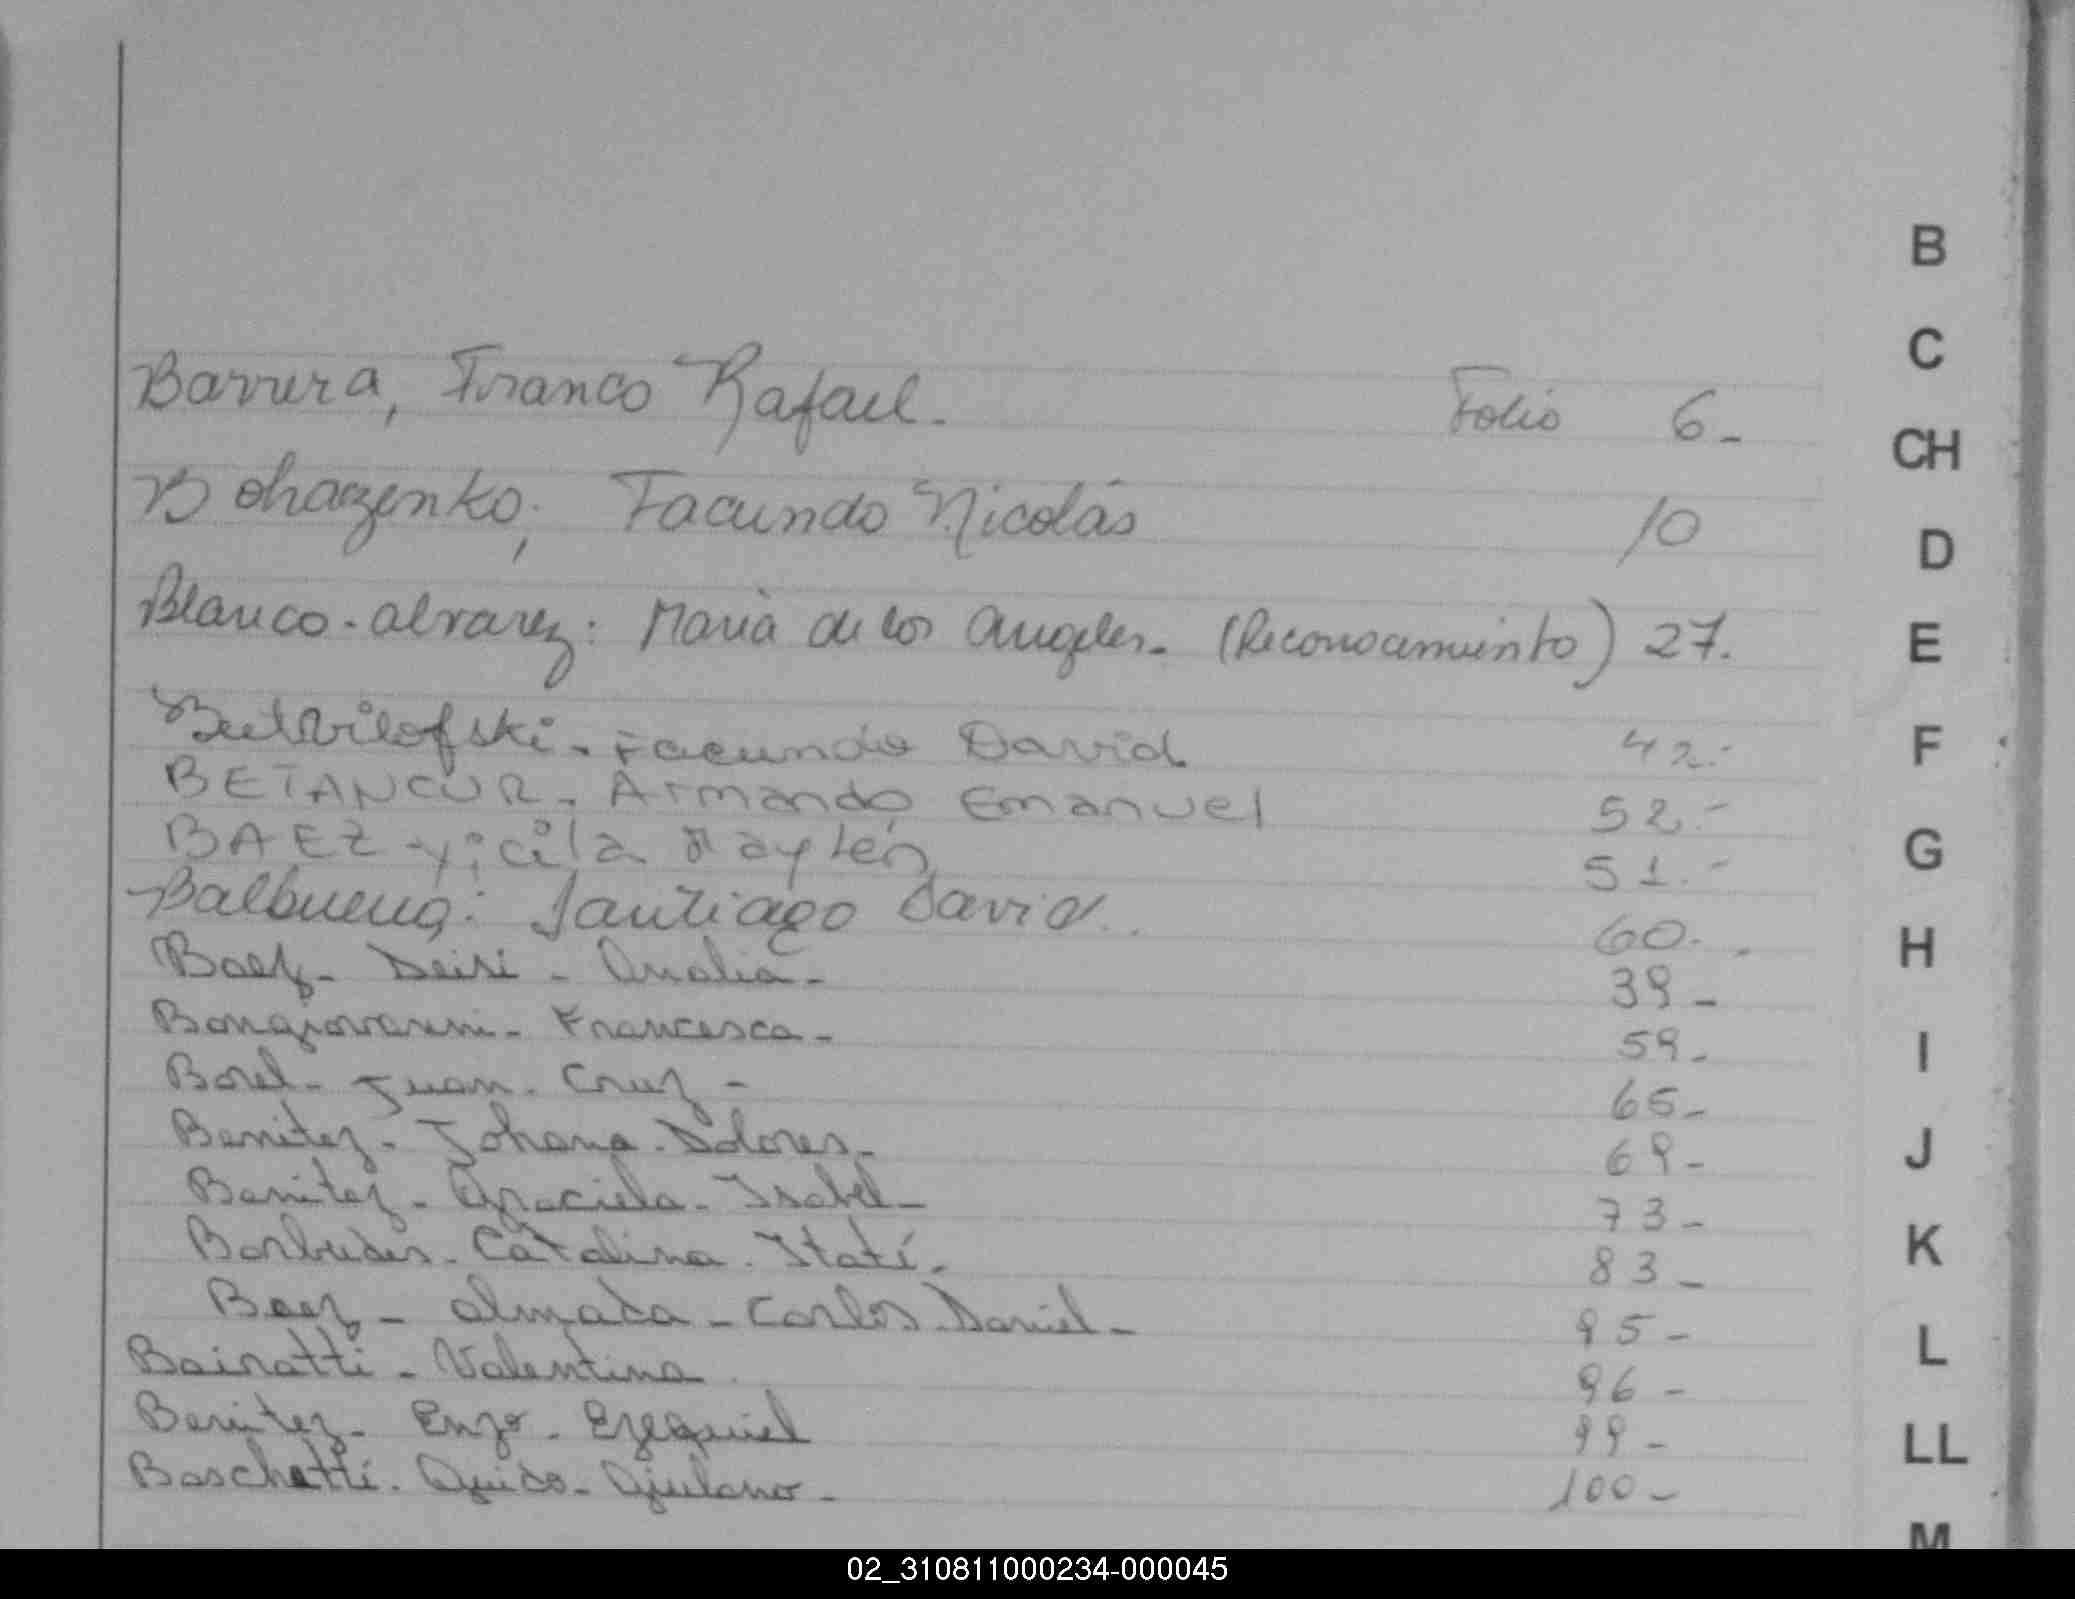 Barrera, Franco Rafael. Folio 6-
Bohaczenko, Facundo Nicolás 10
Blanco-alvarez: Maria de los Angeles. (Reconocamiento) 27.
Facundo David 42.-
BETANCUR. Armando Emanuel 52.-
BAEZ Maylén 51.-
Balbuena: Santiago David. 60.
Baez- Deisi - Analia- 39-
Bongiovanni- Francesca- 59-
Borel- Juan. Cruz - 65-
Benitez- Johana. Dolores- 69-
Benitez- Graciela- Isabel- 73-
Catalina. Itatí. 83-
Baez- almada - Carlos Daniel- 95-
Bairatti - Valentina 96-
Benitez- Enzo. Ezequiel 99-
Boschetti. Guido- Giuliano- 100-
B
C
CH
D
E
F
G
H
I
J
K
L
LL
M
02_310811000234-000045